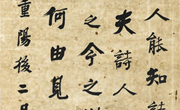 人能知詩
夫詩人
之今之
何由見
重陽後二日